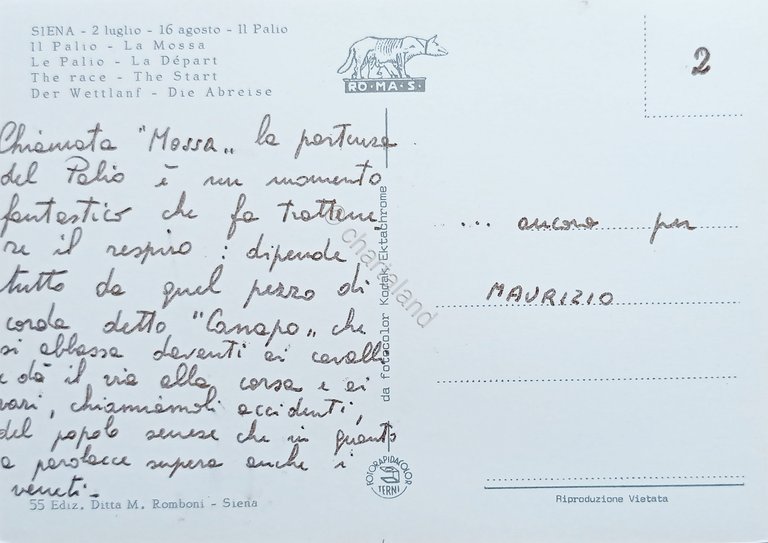 SIENA - 2 luglio - 16 agosto - Il Palio
Il Palio - La Mossa
Le Palio - La Départ
The race - The Start
Der Wettlanf - Die Abreise
RO·MA·S·
2
Chiamata "Mossa„ la partenza
del Palio è un momento
fantastico che fa trattene,
re il respiro: dipende
tutto da quel pezzo di
corda detto "Canapo„ che
si abbassa davanti ai cavalli
e dà il via alla corsa e ai
vari, chiamiamoli accidenti,
del popolo senese che in quanto
a parolacce supera anche i
veneti -
55 Ediz. Ditta M. Romboni - Siena
da fotocolor Kodak Ektachrome
FOTORAPIDACOLOR
TERNI
© charlaland
... ancora per
MAURIZIO
Riproduzione Vietata